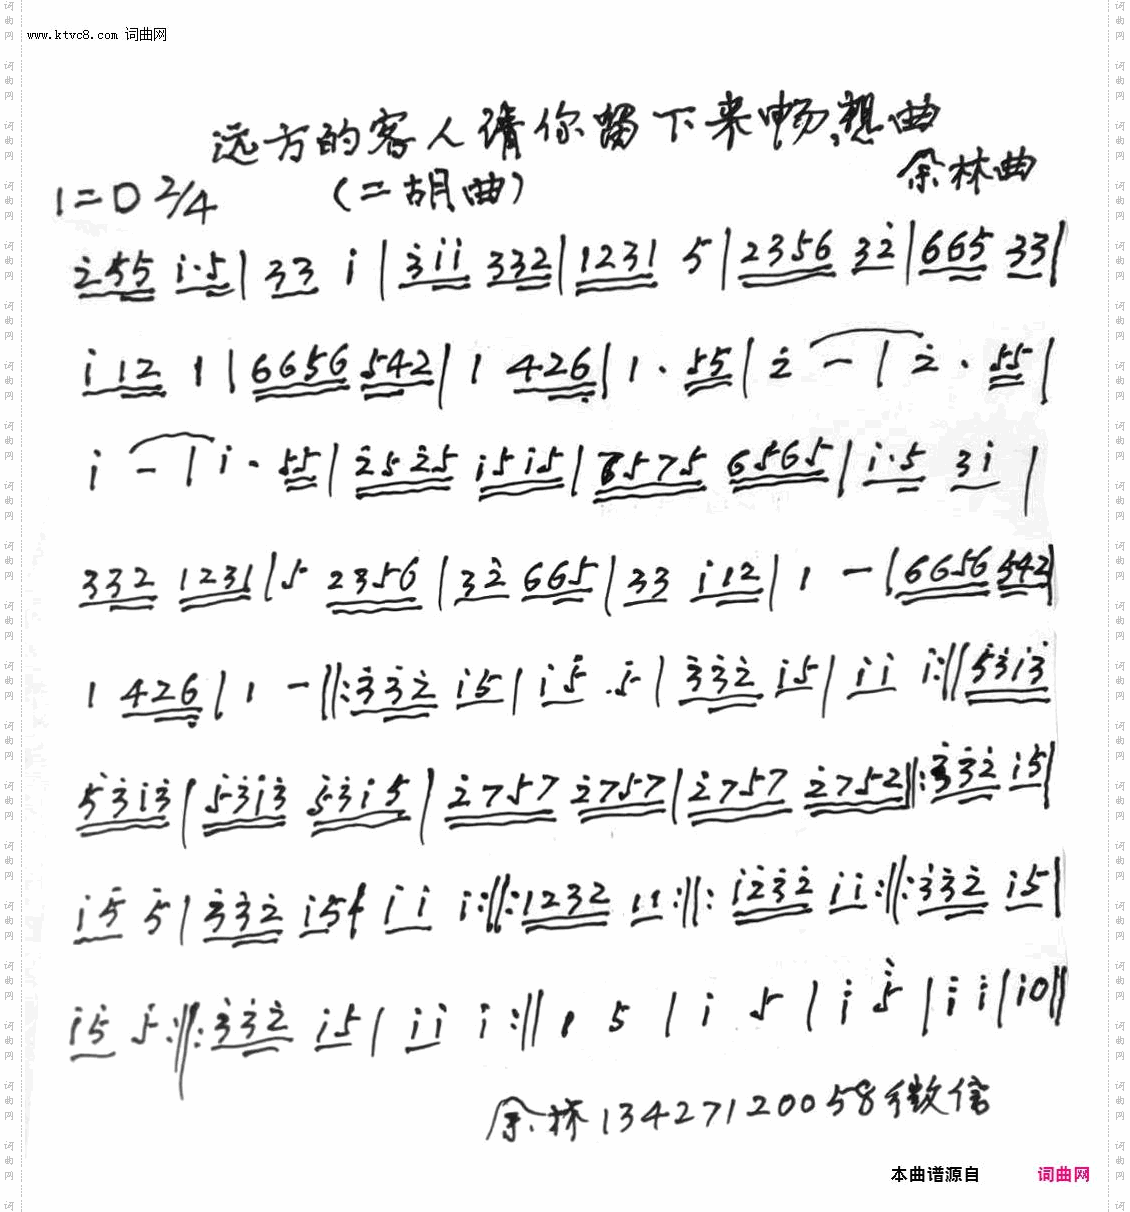 www.ktvc8.com 词曲网
远方的客人请你留下来畅想曲
1=D 2/4 (二胡曲) 余林曲
i̇255 i·5 | 33 i | 3ii 332 | 1231 5 | 2356 32 | 665 33 |
i12 1 | 6656 542 | 1 426 | 1 · 55 | 2 - | 2 · 55 |
i - | i · 55 | 2525 i5i5 | 7575 6565 | i·5 3i |
332 1231 | 5 2356 | 32 665 | 33 i12 | 1 - | 6656 542 |
1 426 | 1 - ‖: 332 i5 | i5 5 | 332 i5 | ii i :‖ 53i3
53i3 | 53i3 53i5 | 2757 2757 | 2757 2752 ‖: 332 i5 |
i5 5 | 332 i5 | ii i :‖: 1232 11 :‖: i232 ii :‖: 332 i5 |
i5 5 :‖: 332 i5 | ii i :‖ 1 5 | i 5 | i 5 | i i | i0 ‖
余林13427120058微信
本曲谱源自 词曲网